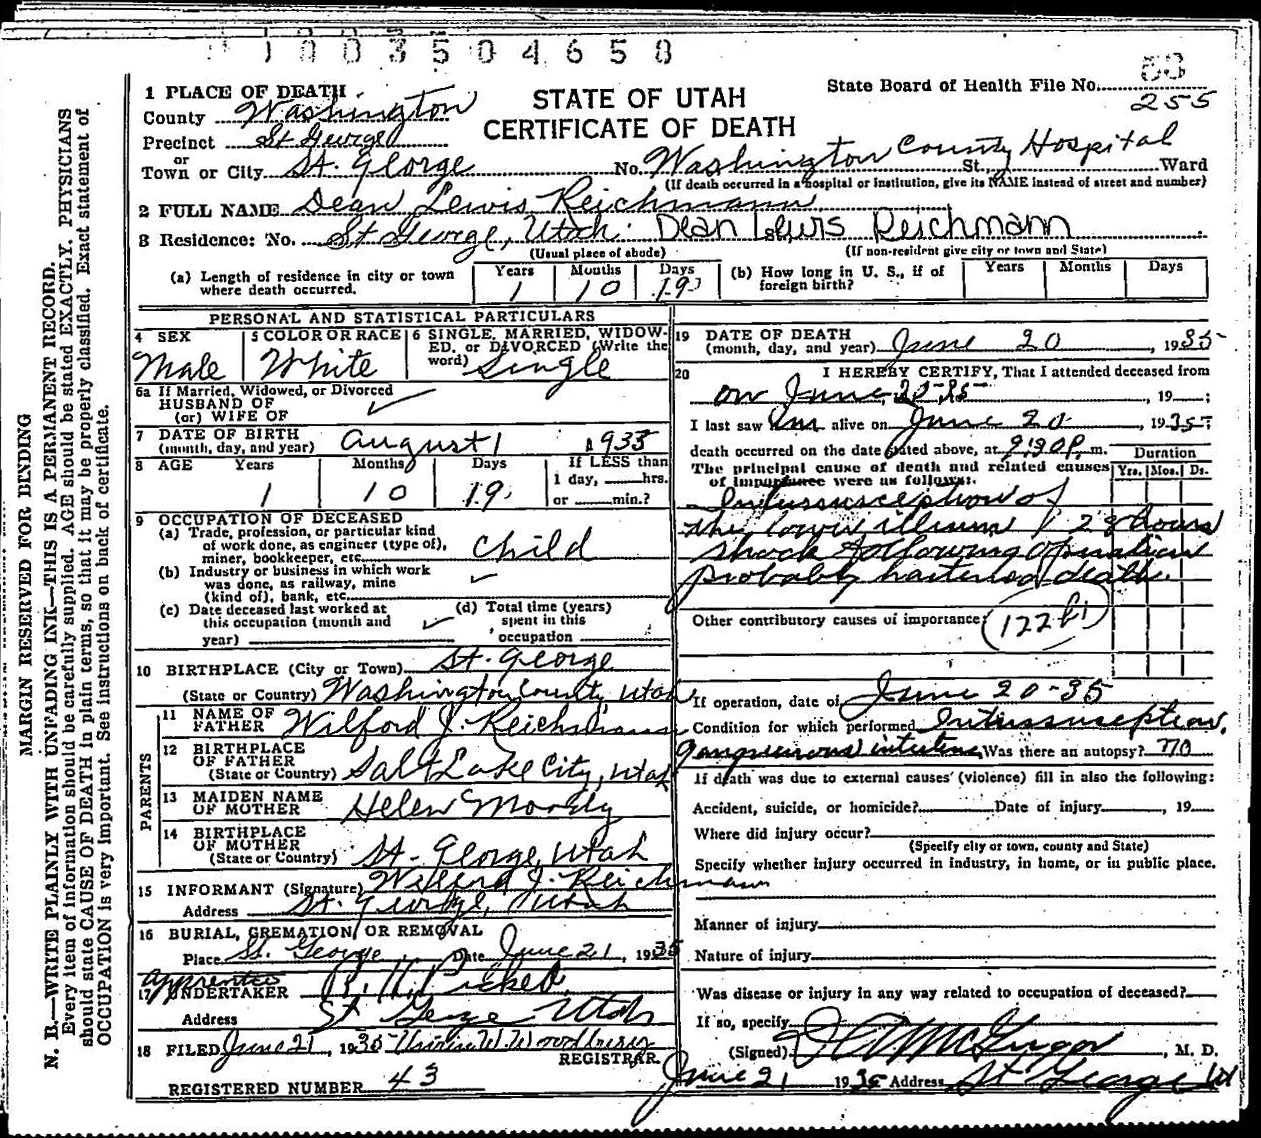 1003504658
1 PLACE OF DEATH
STATE OF UTAH
CERTIFICATE OF DEATH
State Board of Health File No. 
255
County Washington
Precinct St George
or
Town or City St. George No. Washington County Hospital St., Ward
(If death occurred in a hospital or institution, give its NAME instead of street and number)
2 FULL NAME Dean Lewis Reichmann
3 Residence: No. St George, Utah. Dean Reichmann
(Usual place of abode) (If non-resident give city or town and State)
(a) Length of residence in city or town where death occurred. Years 1 Months 10 Days 19
(b) How long in U. S., if of foreign birth? Years Months Days
PERSONAL AND STATISTICAL PARTICULARS
4 SEX Male
5 COLOR OR RACE White
6 SINGLE, MARRIED, WIDOW-
ED, or DIVORCED (Write the
word) Single
6a If Married, Widowed, or Divorced
HUSBAND OF
(or) WIFE OF
7 DATE OF BIRTH
(month, day, and year) August 1 1933
8 AGE Years 1 Months 10 Days 19 If LESS than
1 day, hrs.
or min.?
9 OCCUPATION OF DECEASED
(a) Trade, profession, or particular kind
of work done, as engineer (type of),
miner, bookkeeper, etc. Child
(b) Industry or business in which work
was done, as railway, mine
(kind of), bank, etc.
(c) Date deceased last worked at
this occupation (month and
year)
(d) Total time (years)
spent in this
occupation
10 BIRTHPLACE (City or Town) St. George
(State or Country) Washington County, Utah
PARENTS
11 NAME OF
FATHER Wilford J. Reichmann
12 BIRTHPLACE
OF FATHER
(State or Country) Salt Lake City, Utah
13 MAIDEN NAME
OF MOTHER Helen Moody
14 BIRTHPLACE
OF MOTHER
(State or Country) St. George, Utah
15 INFORMANT (Signature) Wilford J. Reichmann
Address St. George, Utah
16 BURIAL, CREMATION, OR REMOVAL
Place St. George Date June 21, 1935
17 UNDERTAKER
Address St George Utah
18 FILED June 21, 1935 W. Woodbury
REGISTRAR.
REGISTERED NUMBER 43
19 DATE OF DEATH
(month, day, and year) June 20, 1935
20 I HEREBY CERTIFY, That I attended deceased from
on June 20-35, 19 ;
I last saw him alive on June 20, 1935;
death occurred on the date stated above, at 9:30 P. m.
The principal cause of death and related causes
of importance were as follows:
Duration
Yrs. Mos. Ds.
Intussusception of
the lower illium 23 hours
shock following operation
probably hastened death.
Other contributory causes of importance:
If operation, date of June 20-35
Condition for which performed Intussusception,
gangrenous intestine Was there an autopsy? no
If death was due to external causes (violence) fill in also the following:
Accident, suicide, or homicide? Date of injury , 19
Where did injury occur?
(Specify city or town, county and State)
Specify whether injury occurred in industry, in home, or in public place.
Manner of injury
Nature of injury
Was disease or injury in any way related to occupation of deceased?
If so, specify
(Signed) McGregor, M. D.
June 21 1935 Address St George Ut
MARGIN RESERVED FOR BINDING
N. B.—WRITE PLAINLY WITH UNFADING INK—THIS IS A PERMANENT RECORD.
Every item of information should be carefully supplied. AGE should be stated EXACTLY. PHYSICIANS
should state CAUSE OF DEATH in plain terms, so that it may be properly classified. Exact statement of
OCCUPATION is very important. See instructions on back of certificate.